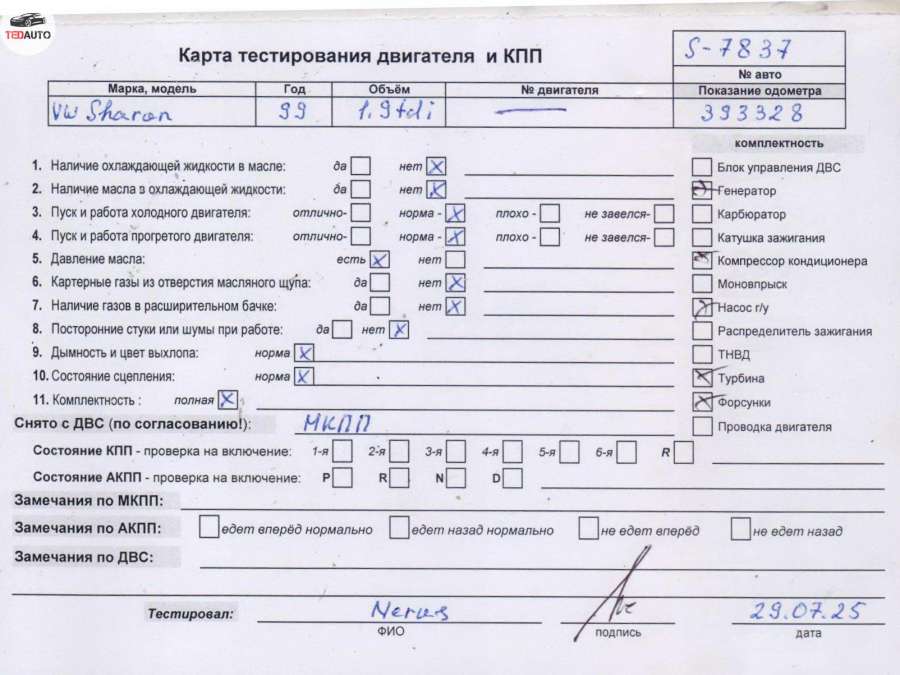 TEDAUTO
Карта тестирования двигателя и КПП
S-7837
№ авто
Марка, модель Год Объём № двигателя Показание одометра
VW Sharan 99 1.9 tdi 393328
комплектность
1. Наличие охлаждающей жидкости в масле: да нет
Блок управления ДВС
2. Наличие масла в охлаждающей жидкости: да нет
Генератор
3. Пуск и работа холодного двигателя: отлично- норма - плохо - не завелся-
Карбюратор
4. Пуск и работа прогретого двигателя: отлично- норма - плохо - не завелся-
Катушка зажигания
5. Давление масла: есть нет
Компрессор кондиционера
6. Картерные газы из отверстия масляного щупа: да нет
Моновпрыск
7. Наличие газов в расширительном бачке: да нет
Насос г/у
8. Посторонние стуки или шумы при работе: да нет
Распределитель зажигания
9. Дымность и цвет выхлопа: норма
ТНВД
10. Состояние сцепления: норма
Турбина
11. Комплектность : полная
Форсунки
Снято с ДВС (по согласованию!): МКПП
Проводка двигателя
Состояние КПП - проверка на включение: 1-я 2-я 3-я 4-я 5-я 6-я R
Состояние АКПП - проверка на включение: P R N D
Замечания по МКПП:
Замечания по АКПП: едет вперёд нормально едет назад нормально не едет вперёд не едет назад
Замечания по ДВС:
Тестировал: 29.07.25
ФИО подпись дата